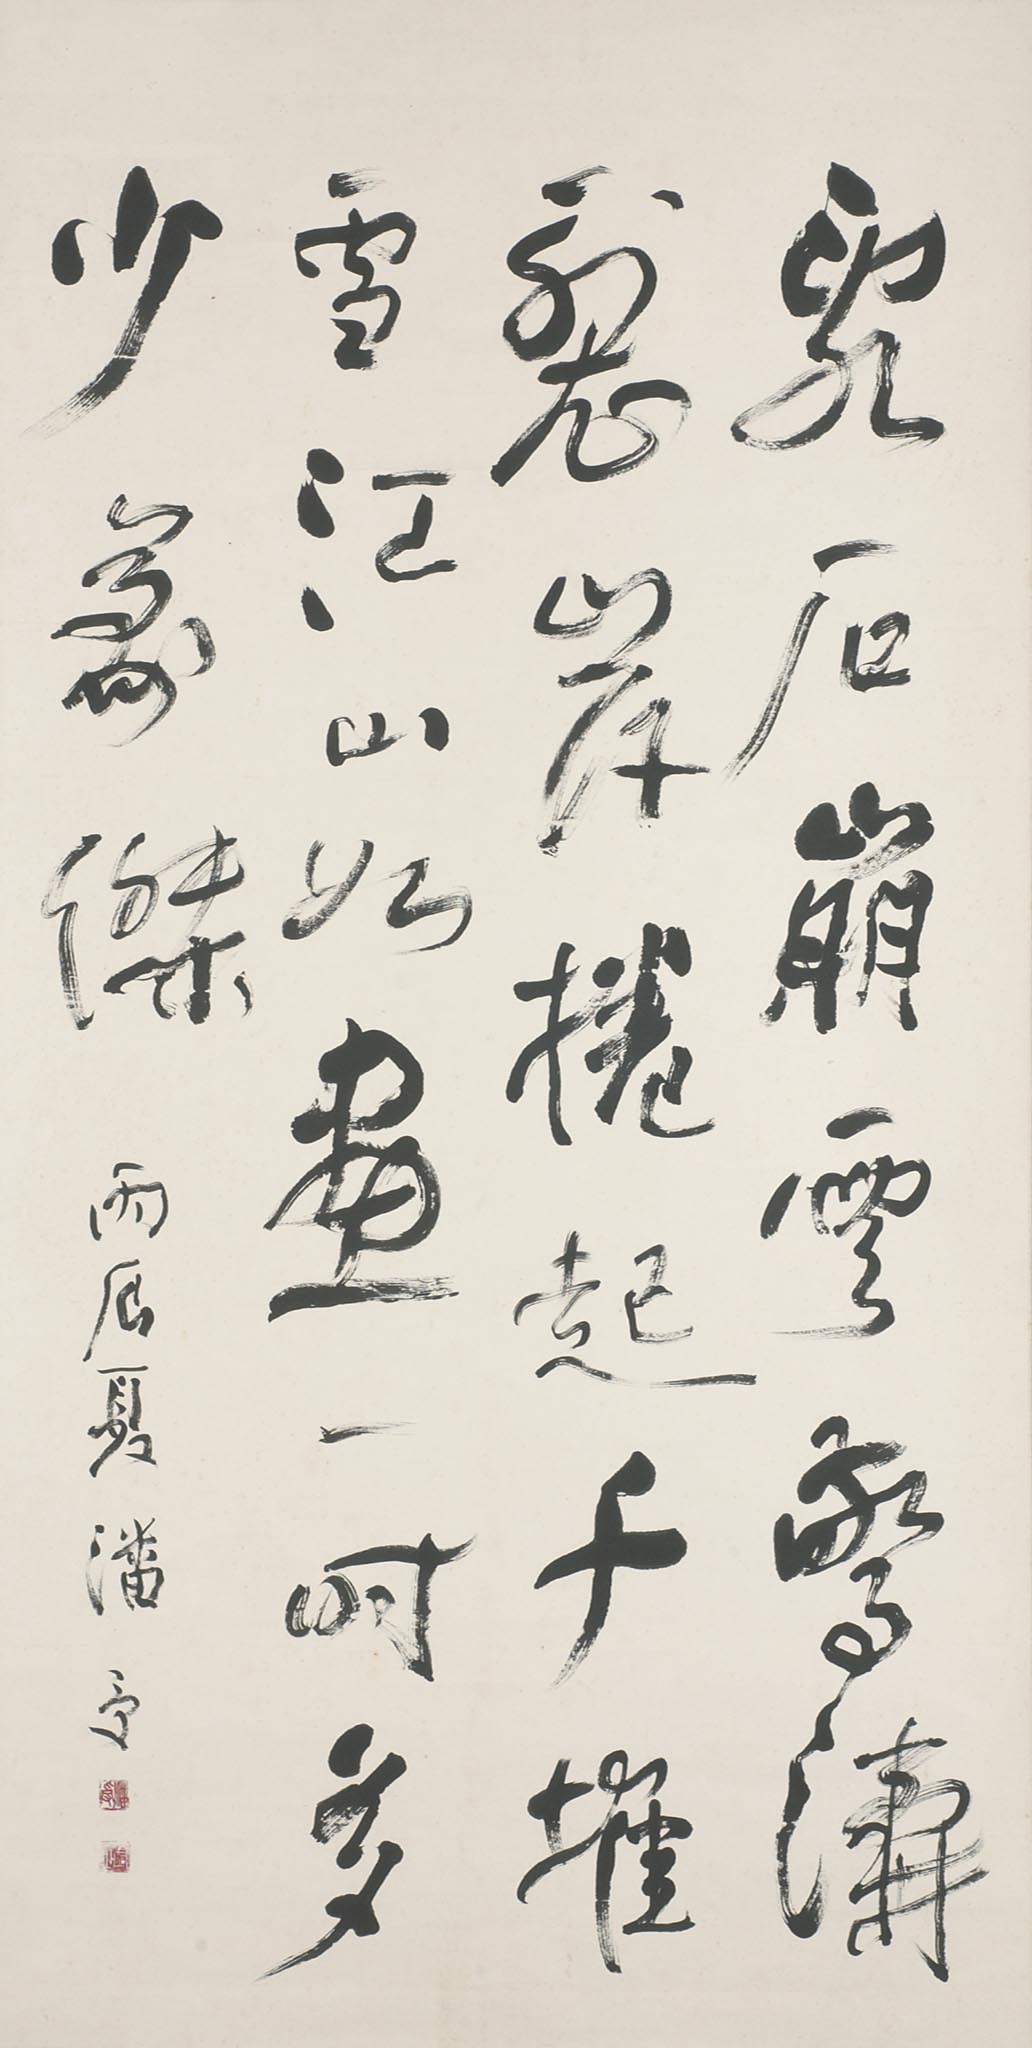 亂石崩雲驚濤
裂岸捲起千堆
雪江山如畫一時多
少豪傑 丙辰夏 潘受